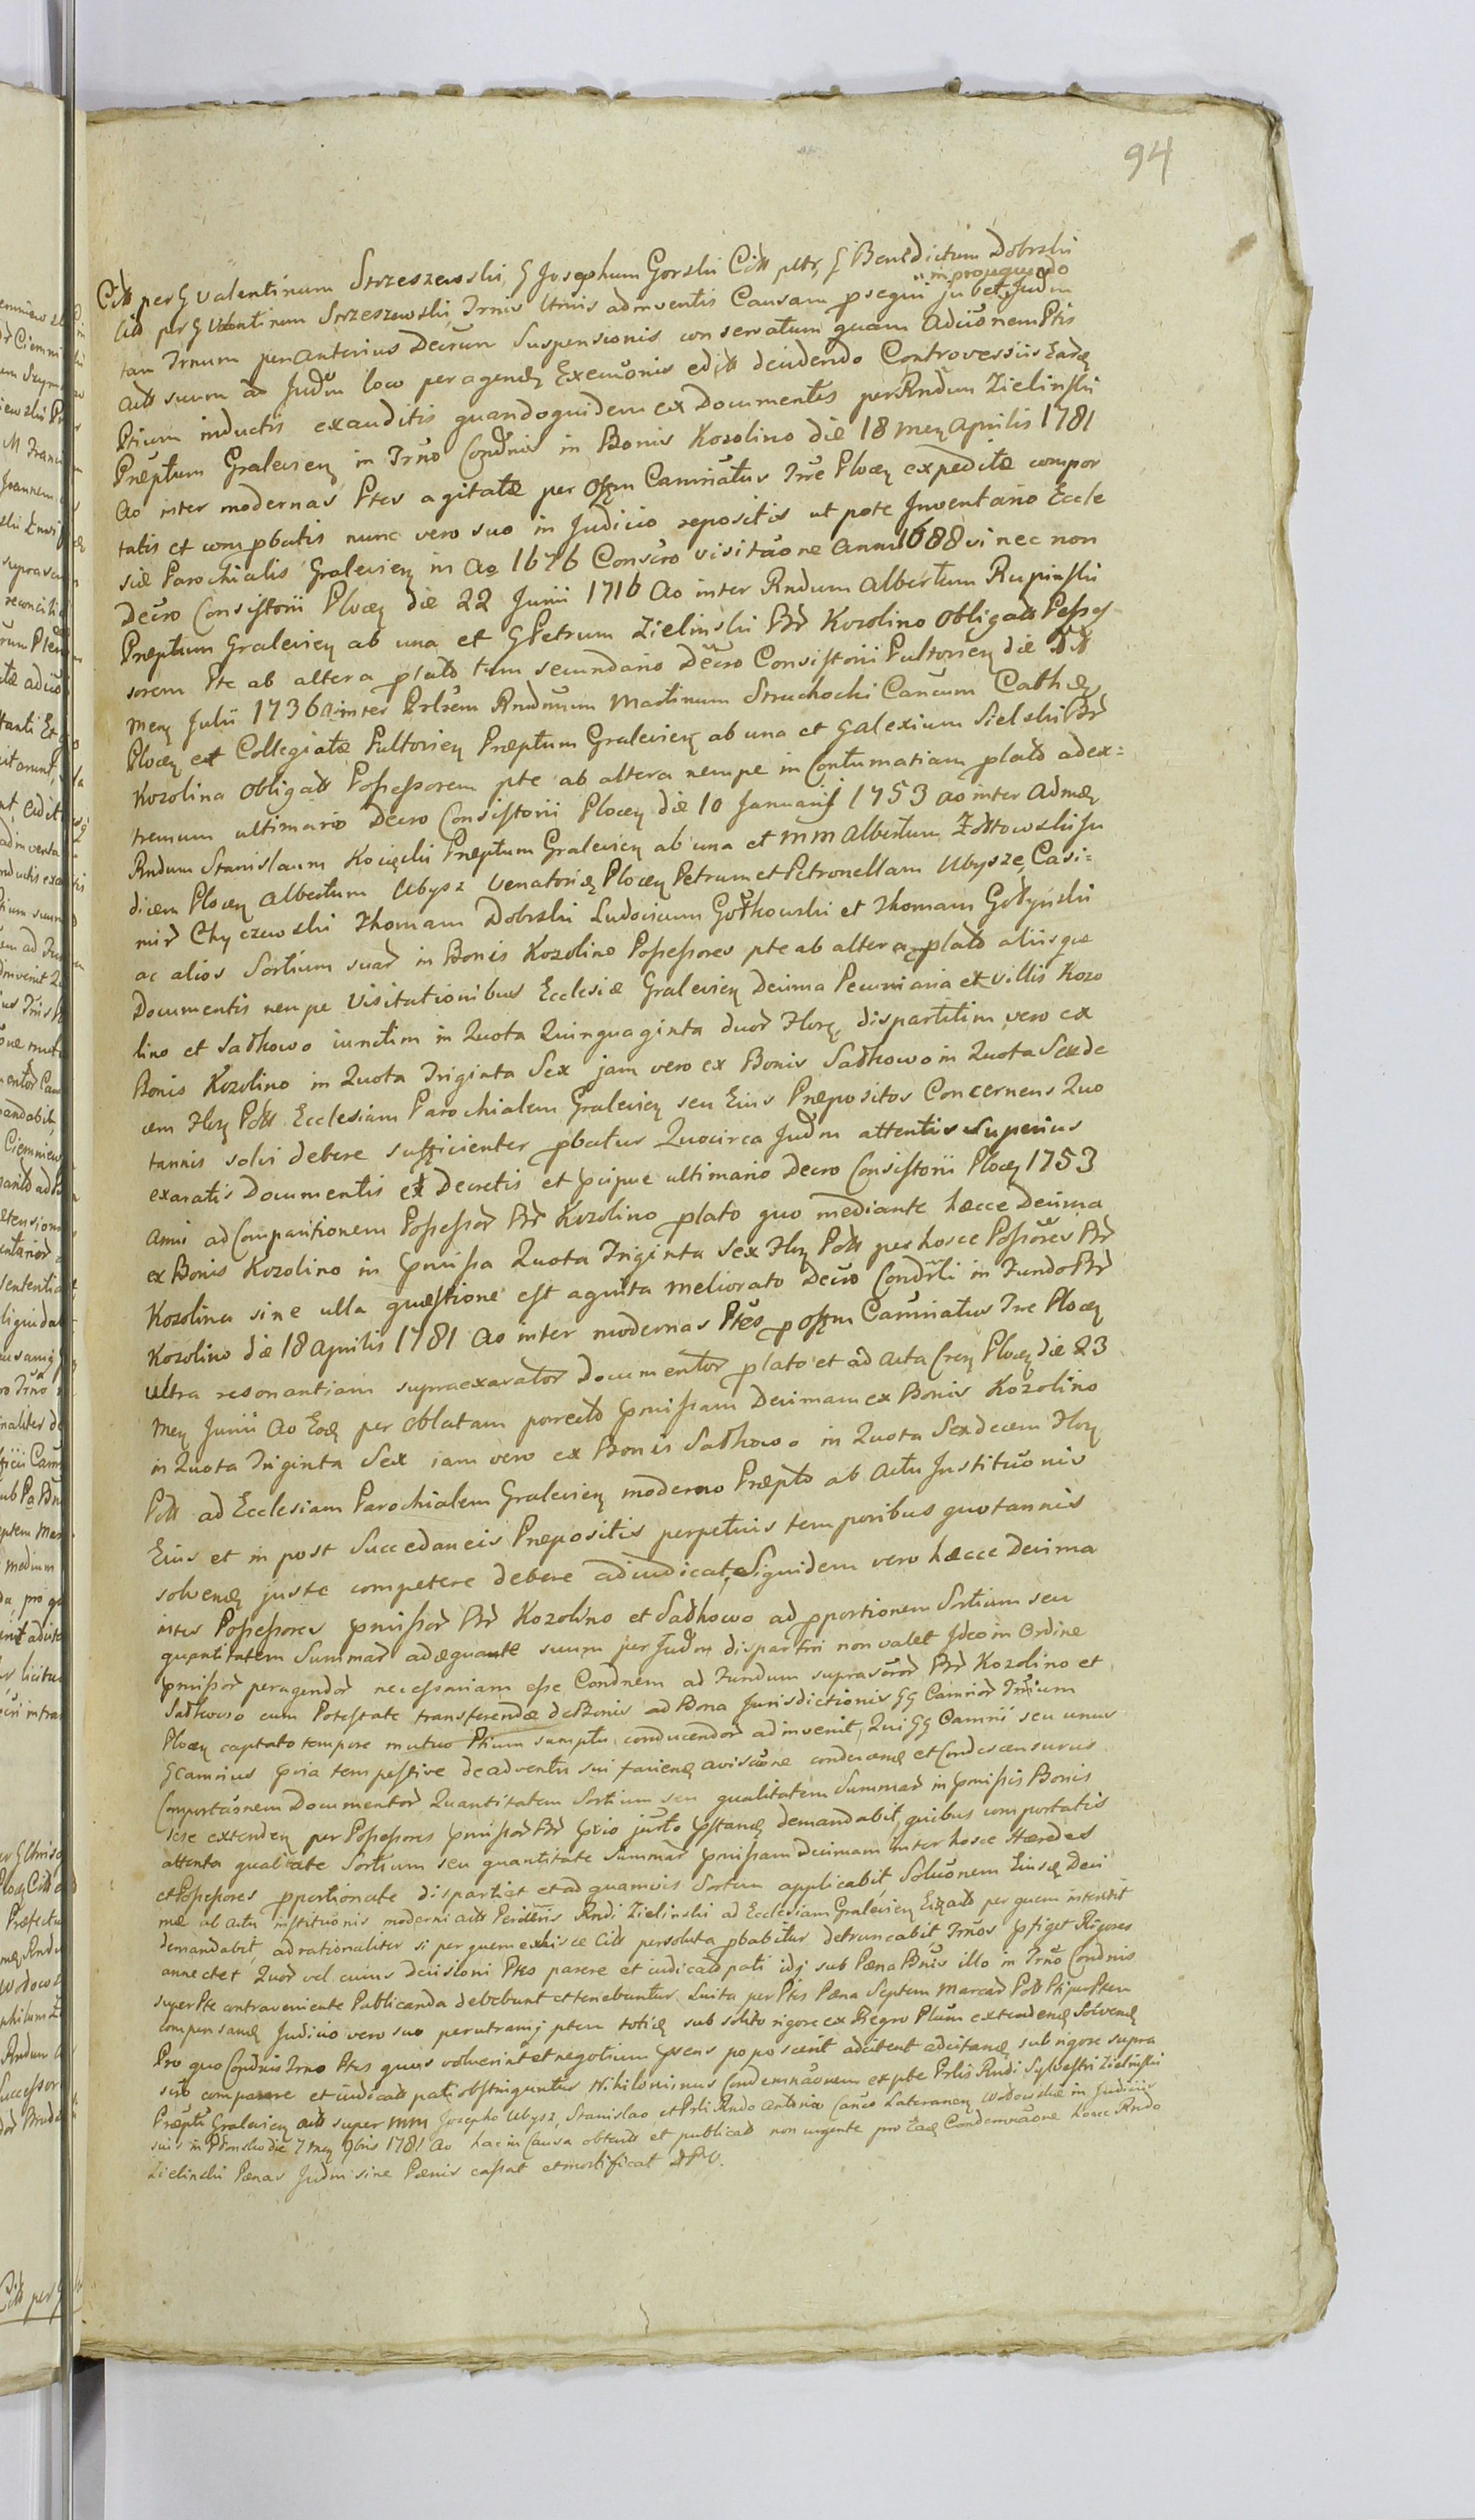 94
Citt per G Valentinum Strzeszewski, G Josephum Gorski Citt pltr, G Benedictum Dobrski
in prosequendo
Citt per G Valentinum Strzeszewski, Trnis Utriis adinventis Causam psequi jubet, Judm
tam Trnum per Anterius Decrum Suspensionis conservatum quam Aduonem Ptis
Actt suum ad Judm loco peragendę Exemonis editt decidendo Controversiis Eardę
Ptium inductis exauditis quandoquidem ex Documentis per Rndum Zielinski
Præptum Gralevien in Trno Condnis in Bonis Kozolino die 18 men Aprilis 1781
Ao inter modernas Ptes agitatæ per Offm Camriatus Trre Plocen expeditæ compor
tatis et compbatis nunc vero suo in Judicio repositis ut pote Inventario Eccle
siæ Parochialis Gralevien in Ao 1676 Conscro visituone Anni 1688vi nec non
Decro Consistorii Plocen die 22 Junii 1716 Ao inter Rndum Albertum Rupinski
Præptum Gralevien ab una et G Petrum Zielinski Br Kozolino Obligatt Posses
sorem Pte ab altera platto tum secundario Decro Consistorii Pultovien die
Men Julii 1736 Ao inter Perlrem Rndmum Martinum Struchocki Cancum Cathdę
Plocen et Collegiatæ Pultovien Præptum Gralevien ab una et G Alexium Sielski Br
Kozolina Obligatt Possessorem pte ab altera nempe in Contumatiam platto adex=
tremum ultimario Decro Consistorii Plocen die 10 Januarii 1753 Ao inter Admdę
Rndum Stanislaum Kocięcki Præptum Gralevien ab una et MM Albertum Żółtowski Ju
dicem Plocen Albertum Ubysz Venatorię Plocen Petrum et Petronellam Ubysze, Casi=
mir Chyczewski Thomam Dobrski Ludovicum Gołkowski et Thomam Gołyński
ac alios Sortium suar in Bonis Kozolino Possessores pte ab altera platto aliisque
Documentis nempe Visitationibus Ecclesiæ Gralevien Decima Pecuniaria et villis Kozo
lino et Sadkowo iunctim in Quota Quinquaginta duor Flor, dispartitim vero ex
Bonis Kozolino in Quota Triginta Sex jam vero ex Bonis Sadkowo in Quota Sexde
cem Flor Poll Ecclesiam Parochialem Gralevien seu Eius Præpositos Concernens Quo
tannis solvi debere sufficienter pbatur Quocirca Judm attentis Superius
exaratis Documentis et Decretis et pcipue ultimario Decro Consistorii Plocen 1753
Anni ad Comparitionem Possessor Br Kozolino plato quo mediante hæcce Decima
ex Bonis Kozolino in pmissa Quota Triginta Sex Flor Poll per hosce Possores Br
Kozolina sine ulla quæstione est agnita meliorato Decro Condrli in Fundo Br
Kozolino die 18 Aprilis 1781 Ao inter modernas Ptes p Offm Camriatus Trre Plocen
ultra resonantiam supraexarator Documentor plato et ad Acta Cren Plocen die 23
Men Junii Ao Eodę per Oblatam porrectto pmissam Decimam ex Bonis Kozolino
in Quota Triginta Sex iam vero ex Bonis Sadkowo in Quota Sexdecem Flor
Poll ad Ecclesiam Parochialem Gralevien moderno Præpto ab Actu Institutionis
Eius et in post Succedaneis Præpositis perpetuis temporibus quotannis
solvendę juste competere debere adiudicat, Siquidem vero hæcce Decima
inter Possessores pmissor Br Kozolino et Sadkowo ad pportionem Sortium seu
quantitatem Summar adæquante suum per Judm dispartiri non valet Ideo in Ordine
pmissor peragendor necessariam esse Condnem ad Fundum suprascror Br Kozolino et
Sadkowo cum Potestate transferendæ de Bonis ad Bona Jurisdictionis GG Camrior Trrium
Plocen captato tempore mutuo Ptium sumptu conducendor adinvenit, Qui GG Camrii seu unus
G Camrius pvia tempestive de adventu sui faciendę avisuone condecendę et Condescensurus
Comportaonem Documentor Quantitatem Sortium seu qualitatem Summar in pmissis Bonis
sese extenden per Possessores pmissor Br pvio jurto pstandę demandabit, quibus comportatis
attenta qualitate Sortium seu quantitate Summar pmissam Decimam inter hosce Hæredes
et Possessores pportionate dispartiet et ad quamvis Sortem applicabit Soluonem Eiusdę Deci
mæ ab Actu institutionis moderni Actt Rndi Zielinski ad Ecclesiam Gralevien per quem intererit
demandabit, ad rationaliter si per quem ex hisce Citt persoluta pbabitur detruncabit, Trnos pfiget Rigores
annectet Quor vel cuius decisioni Ptes parere et iudicatt pati idq sub Pæna Bnis illo in Trno Condnis
super Pte contraveniente Publicanda debebunt et tenebuntur Luita per Ptes Pæna Septem Marcar Poll Pti per Ptem
compensandę Judicio vero suo per utramq ptem toties sub solito rigore ex Regro Plum extendendę Solvendę
Pro quo Condnis Trno Ptes quovis voluerint et negotium psens poposcerit adcitent adcitandę sub rigore supra
scrto comparere et iudicatt pati obstringuntur, Nihilominus Condemnaonem ex pte Prlis Rndi Sylvestri Zielinski
Præpti Gralevien Actt super MM Josepho Ubysz, Stanislao et Prli Rndo Antonio Canco Lateranen Wdowskie in Judiciis
suis in Płonsko die 7 Men 9bris 1781 Ao hac in Causa obtentt et publicatt non urgente pro Eadę Condemnaone hocce Rndo
Zielinski Pænas Judm sine Pænis cassat et mortificat DPV.